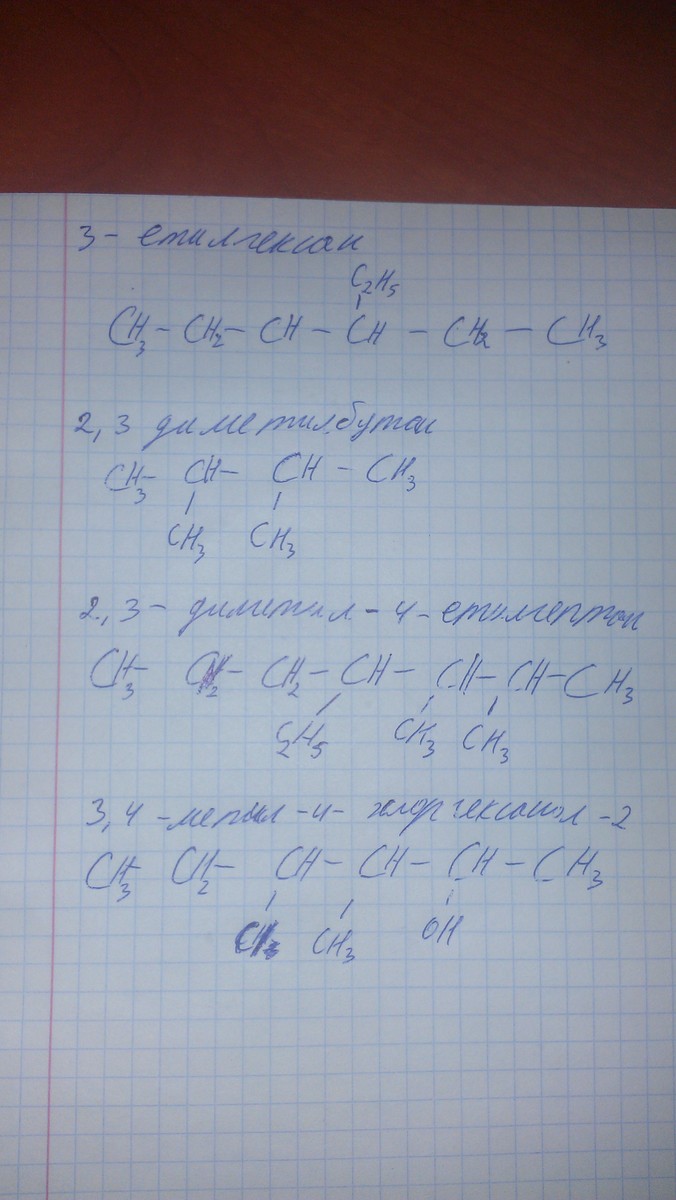 3 - етилгексан
C₂H₅
CH₃ - CH₂ - CH - CH - CH₂ - CH₃
2, 3 диметилбутан
CH₃ - CH - CH - CH₃
CH₃ CH₃
2, 3 - диметил - 4 - етилгептан
CH₃ - CH₂ - CH₂ - CH - CH - CH - CH₃
C₂H₅ CH₃ CH₃
3, 4 - метил - 4 - хлоргексанол - 2
CH₃ - CH₂ - CH - CH - CH - CH₃
CH₃ OH